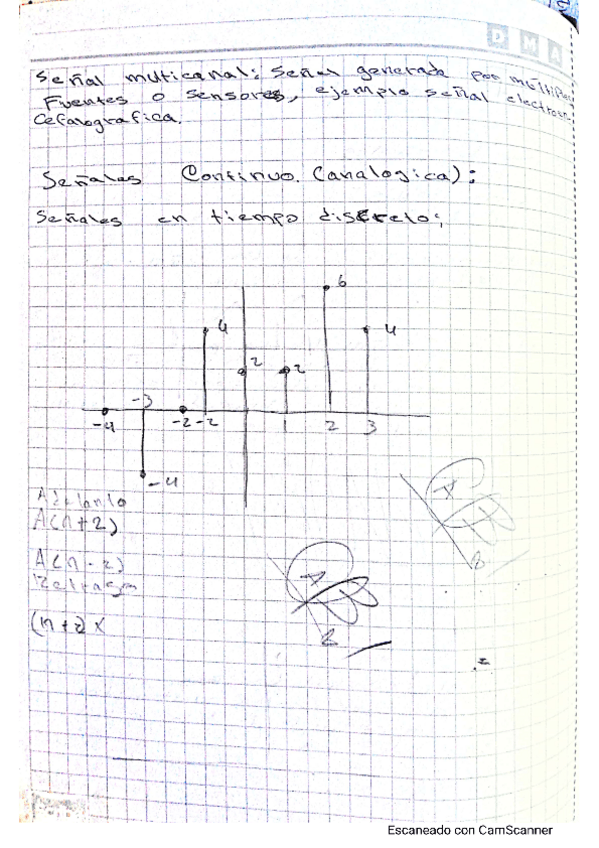 D M A
Señal multicanal: Señal generada por múltiples
Fuentes o sensores, ejemplo señal electroen
Cefalografica.
Señales Continuo. (analogica):
Señales en tiempo discreto:
6
4
4
2
2
-3
-4
-2
-2
2
3
-4
Adelanto
A(n+2)
A(n-2)
(n+2) x
A
2
Escaneado con CamScanner